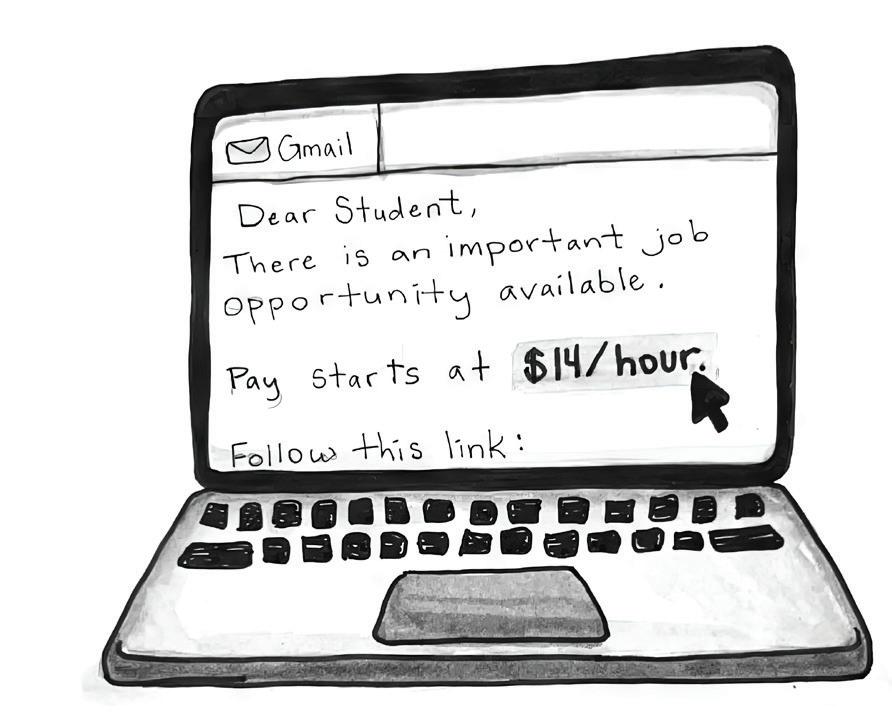 Gmail
Dear Student,
There is an important job
opportunity available.
Pay starts at $14/hour.
Follow this link: